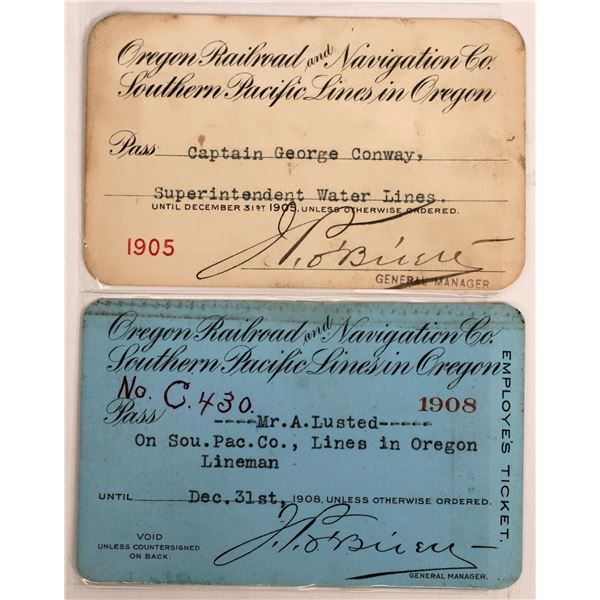 Oregon Railroad and Navigation Co.
Southern Pacific Lines in Oregon
Pass Captain George Conway,
Superintendent Water Lines.
UNTIL DECEMBER 31ST 1905, UNLESS OTHERWISE ORDERED.
1905
J P O'Brien
GENERAL MANAGER
Oregon Railroad and Navigation Co.
Southern Pacific Lines in Oregon
No. C.430. 1908
Pass ----Mr.A.Lusted-----
On Sou.Pac.Co., Lines in Oregon
Lineman
UNTIL Dec.31st, 1908, UNLESS OTHERWISE ORDERED.
VOID
UNLESS COUNTERSIGNED
ON BACK.
J P O'Brien
GENERAL MANAGER.
EMPLOYE'S TICKET.